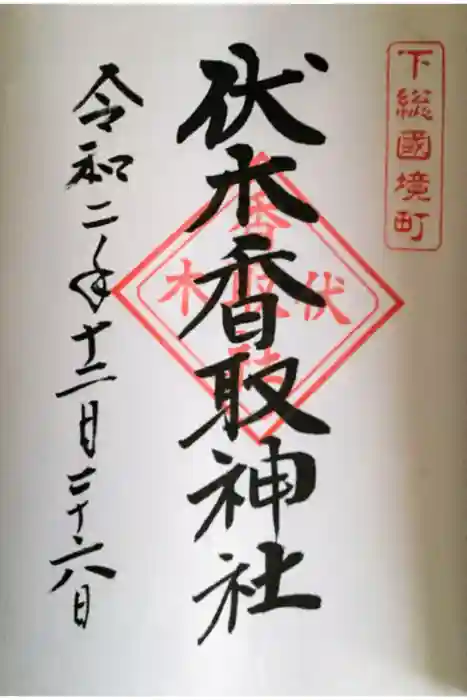 下総國境町
伏木香取神社
伏木
香取社
令和二年十二月二十六日